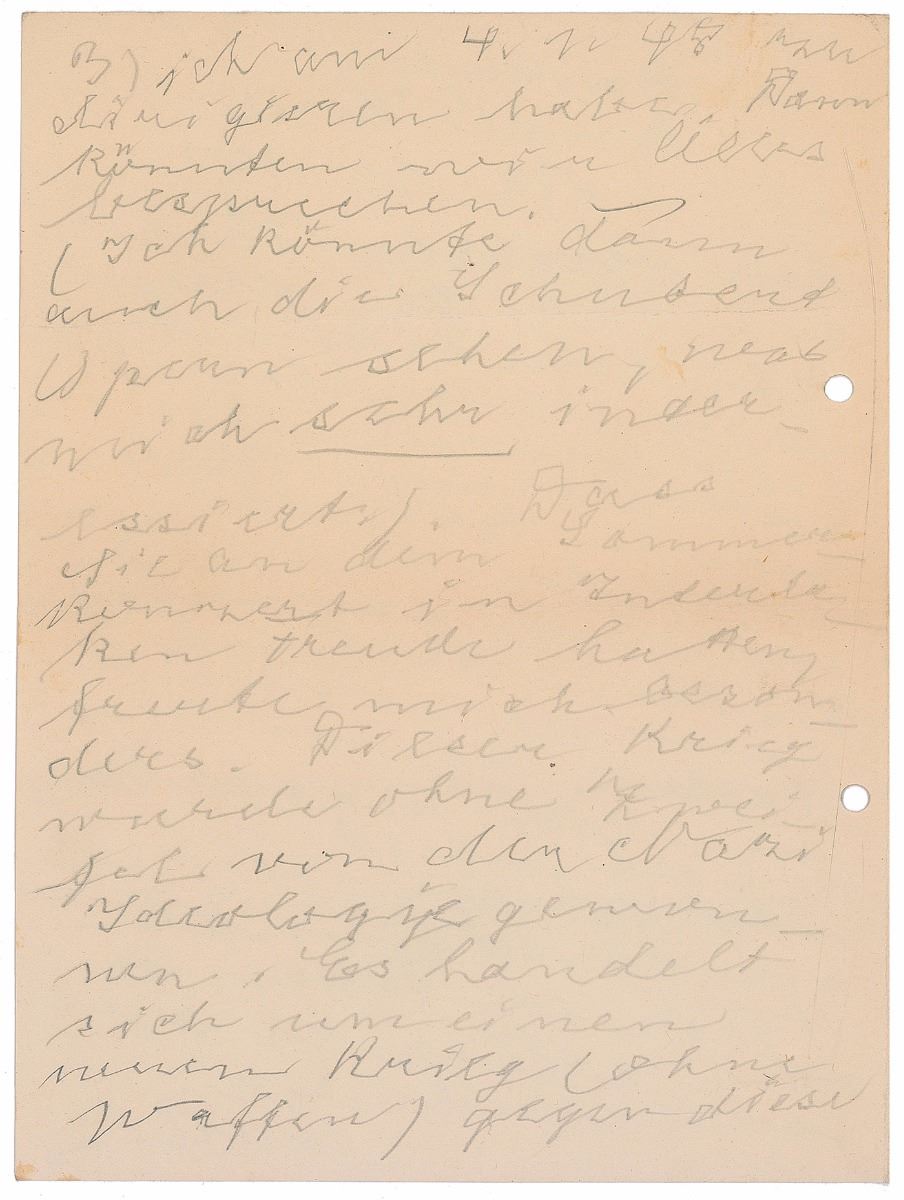 3) ich am 4. 11. 45 zu
dirigieren habe. Dann
könnten wir Alles
besprechen.
(Ich könnte dann
auch die Schubert
Opern sehen, was
mich sehr inter-
essiert.) Dass
Sie an dem Sommer-
konzert in Interla-
ken Freude hatten,
freute mich beson-
ders. Dieser Krieg
wurde ohne Zwei-
fel von der Nazi
Ideologie gewon-
nen. Es handelt
sich um einen
neuen Krieg (ohne
Waffen) gegen diese